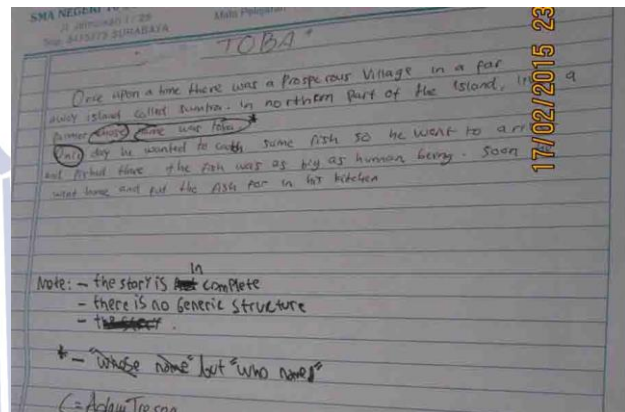 SMA NEGERI
SURABAYA
TOBA"
Once upon a time there was a Prosperous Village in a far
away island called Sumtra. in northern part of the Island, a
farmer whose name was toba *
Only day he wanted to catch some fish so he went to a
and fished there the fish was as big as human being. Soon
went home and put the fish for in his kitchen
Note: - the story is in complete
- there is no Generic Structure
* - "whose name" but "who named"
17/02/2015 23